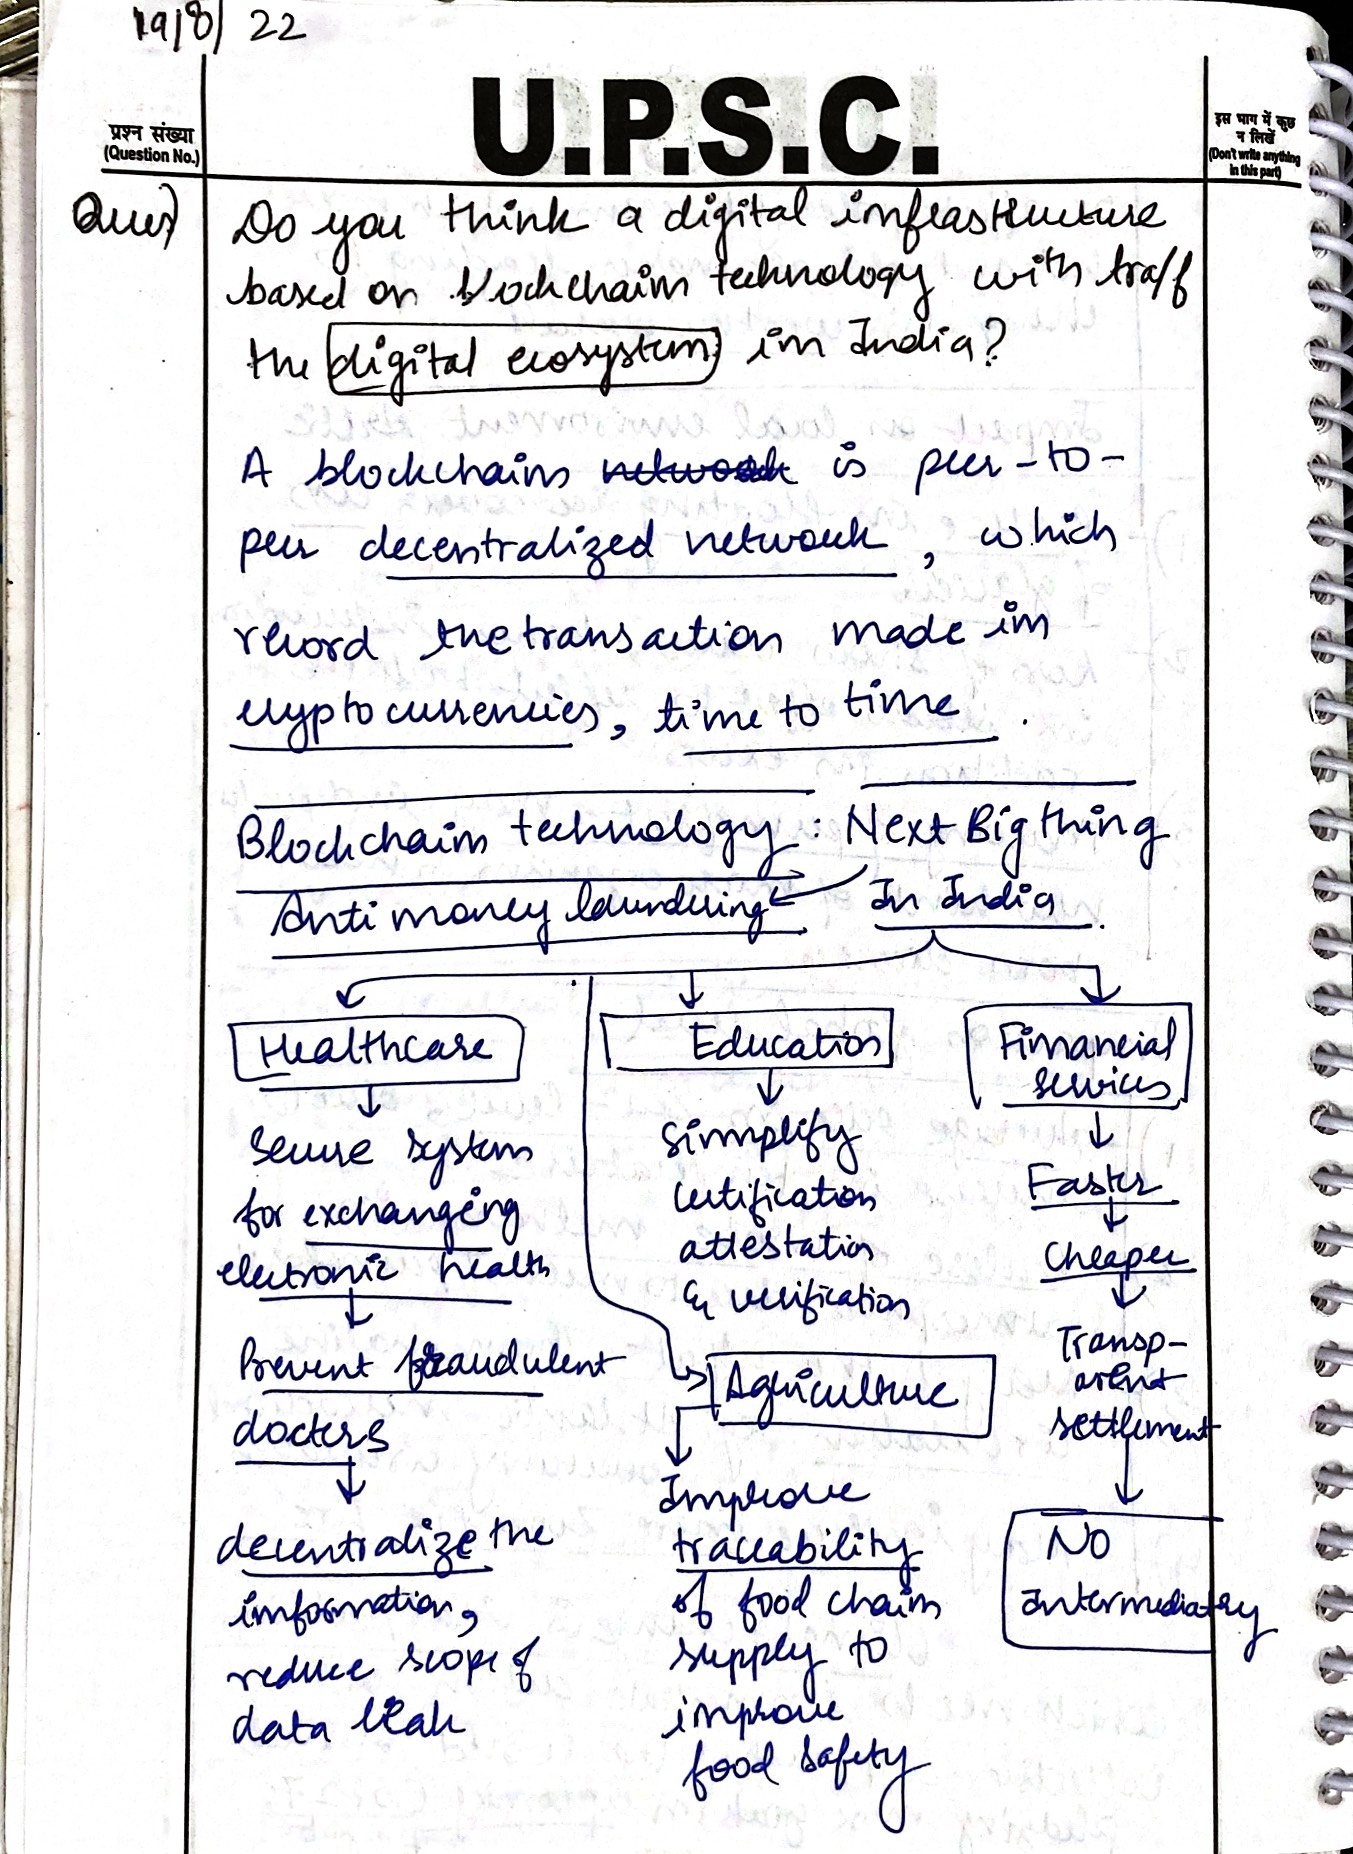 19/8/22
U.P.S.C.
प्रश्न संख्या
(Question No.)
इस भाग में कुछ
न लिखें
(Don't write anything
in this part)
Ques)
Do you think a digital infrastructure
based on blockchain technology with
the digital ecosystem in India?
A blockchains network is peer-to-
peer decentralized network, which
record the transaction made in
cryptocurrencies, time to time.
Blockchain technology: Next Big thing
Anti money laundering In India.
Healthcare
Secure system
for exchanging
electronic health
Prevent fraudulent
docters
decentralize the
information,
reduce scope of
data leak
Education
Simplify
certification
attestation
& verification
Agriculture
Improve
traceability
of food chain
supply to
improve
food safety
Financial
services
Faster
Cheaper
Transp-
arent
settlement
No
intermediatry